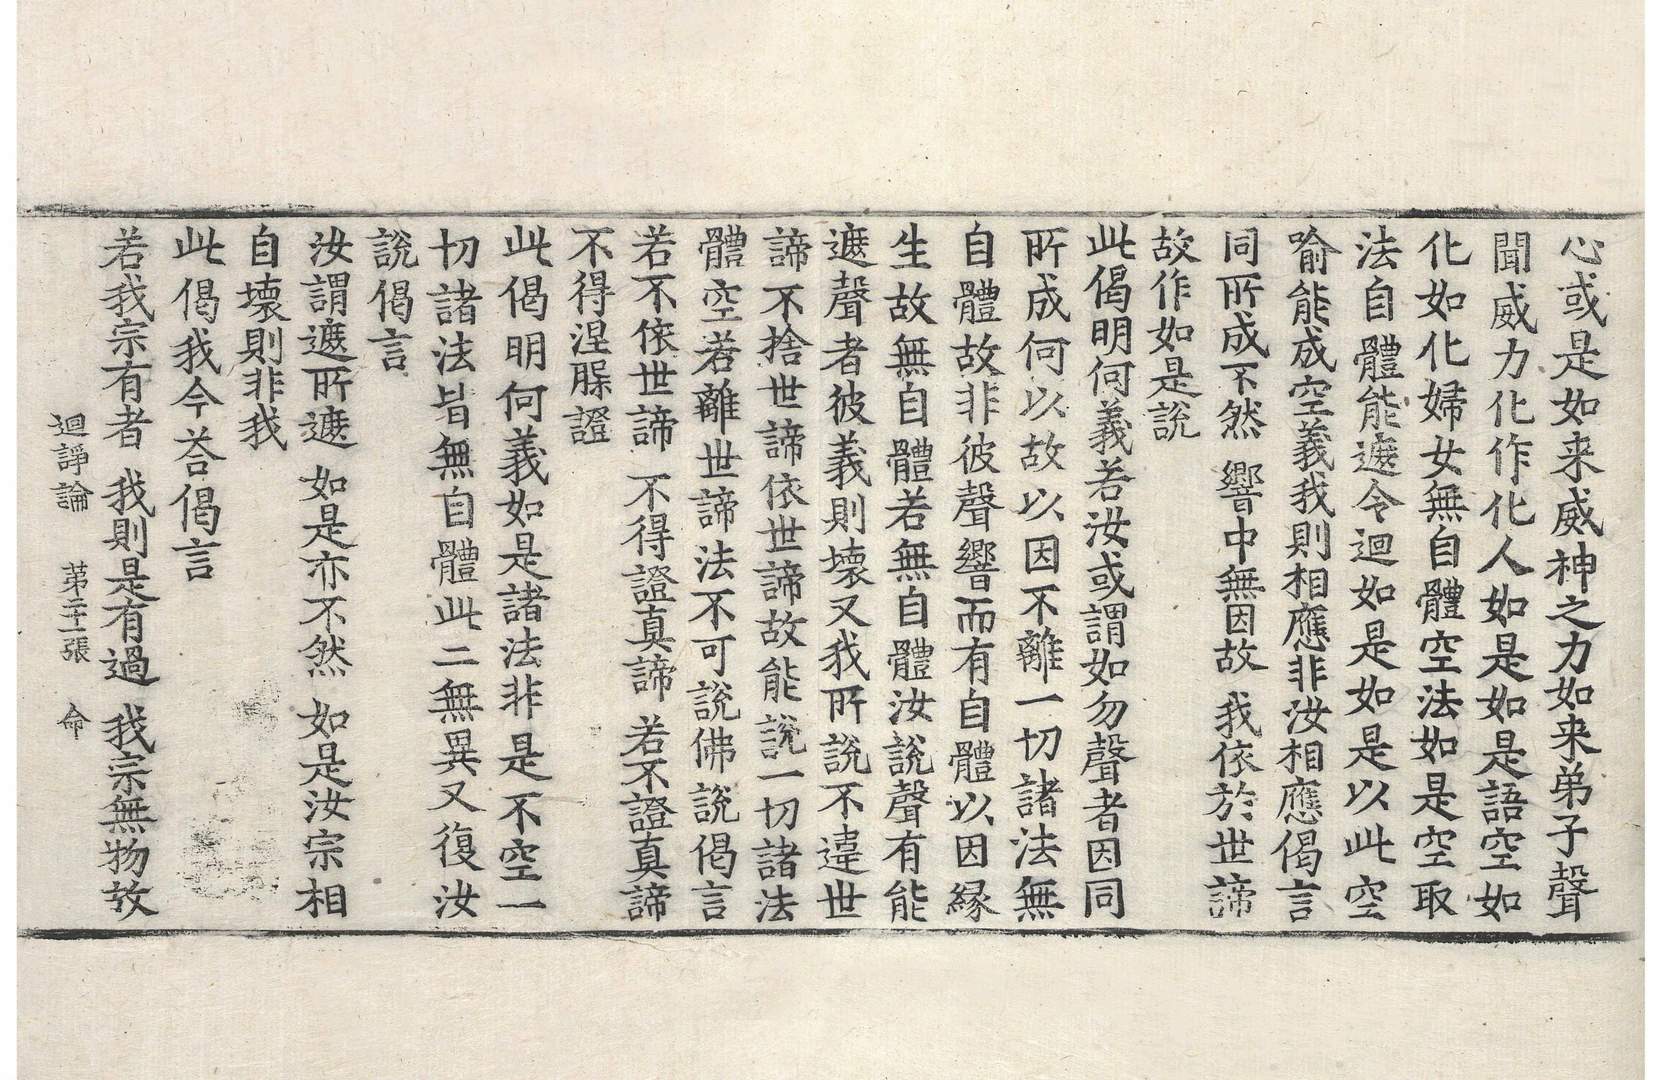 心或是如来威神之力如来弟子聲
聞威力化作化人如是如是語空如
化如化婦女無自體空法如是空取
法自體能遮令迴如是如是以此空
喻能成空義我則相應非汝相應偈言
同所成不然 響中無因故 我依於世諦
故作如是說
此偈明何義若汝或謂如勿聲者因同
所成何以故以因不離一切諸法無
自體故非彼聲響而有自體以因緣
生故無自體若無自體汝說聲有能
遮聲者彼義則壞又我所說不違世
諦不捨世諦依世諦故能說一切諸法
體空若離世諦法不可說佛說偈言
若不依世諦 不得證真諦 若不證真諦
不得涅槃證
此偈明何義如是諸法非是不空一
切諸法皆無自體此二無異又復汝
說偈言
汝謂遮所遮 如是亦不然 如是汝宗相
自壞則非我
此偈我今荅偈言
若我宗有者 我則是有過 我宗無物故
迴諍論 苐二十一張 命